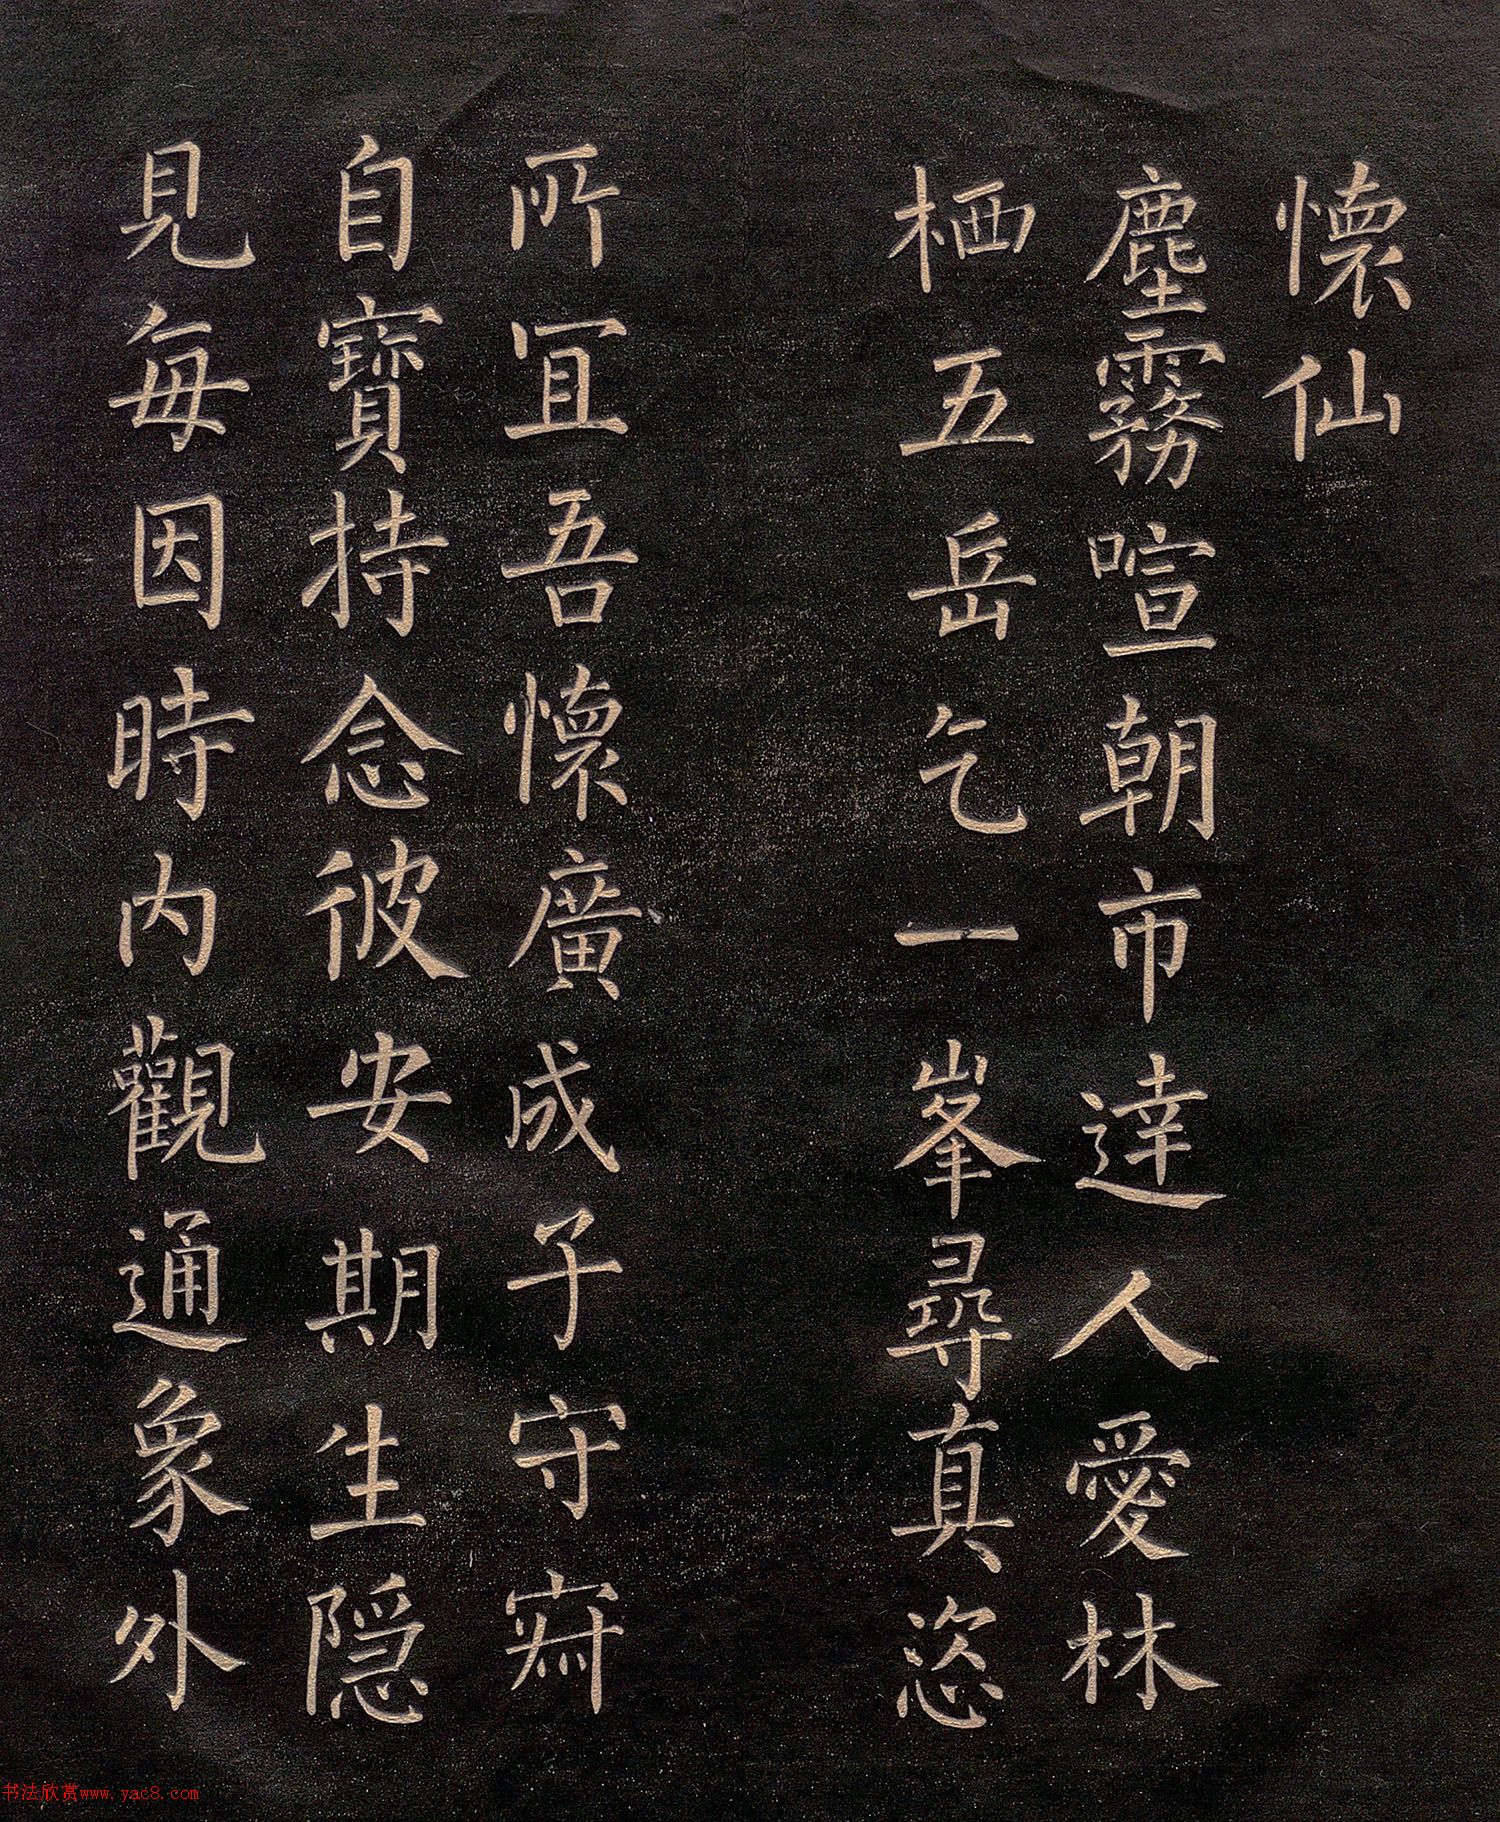 懷仙
塵霧喧朝市達人愛林
栖五岳乞一峯尋真恣
所冝吾懷廣成子守㝥
自寳持念彼安期生隠
見每因時内觀通象外
书法欣赏www.yac8.com